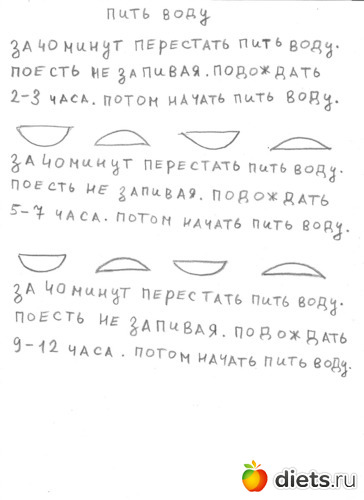 ПИТЬ ВОДУ
ЗА 40 МИНУТ ПЕРЕСТАТЬ ПИТЬ ВОДУ.
ПОЕСТЬ НЕ ЗАПИВАЯ. ПОДОЖДАТЬ
2-3 ЧАСА. ПОТОМ НАЧАТЬ ПИТЬ ВОДУ.
ЗА 40 МИНУТ ПЕРЕСТАТЬ ПИТЬ ВОДУ.
ПОЕСТЬ НЕ ЗАПИВАЯ. ПОДОЖДАТЬ
5-7 ЧАСА. ПОТОМ НАЧАТЬ ПИТЬ ВОДУ.
ЗА 40 МИНУТ ПЕРЕСТАТЬ ПИТЬ ВОДУ.
ПОЕСТЬ НЕ ЗАПИВАЯ. ПОДОЖДАТЬ
9-12 ЧАСА. ПОТОМ НАЧАТЬ ПИТЬ ВОДУ.
diets.ru